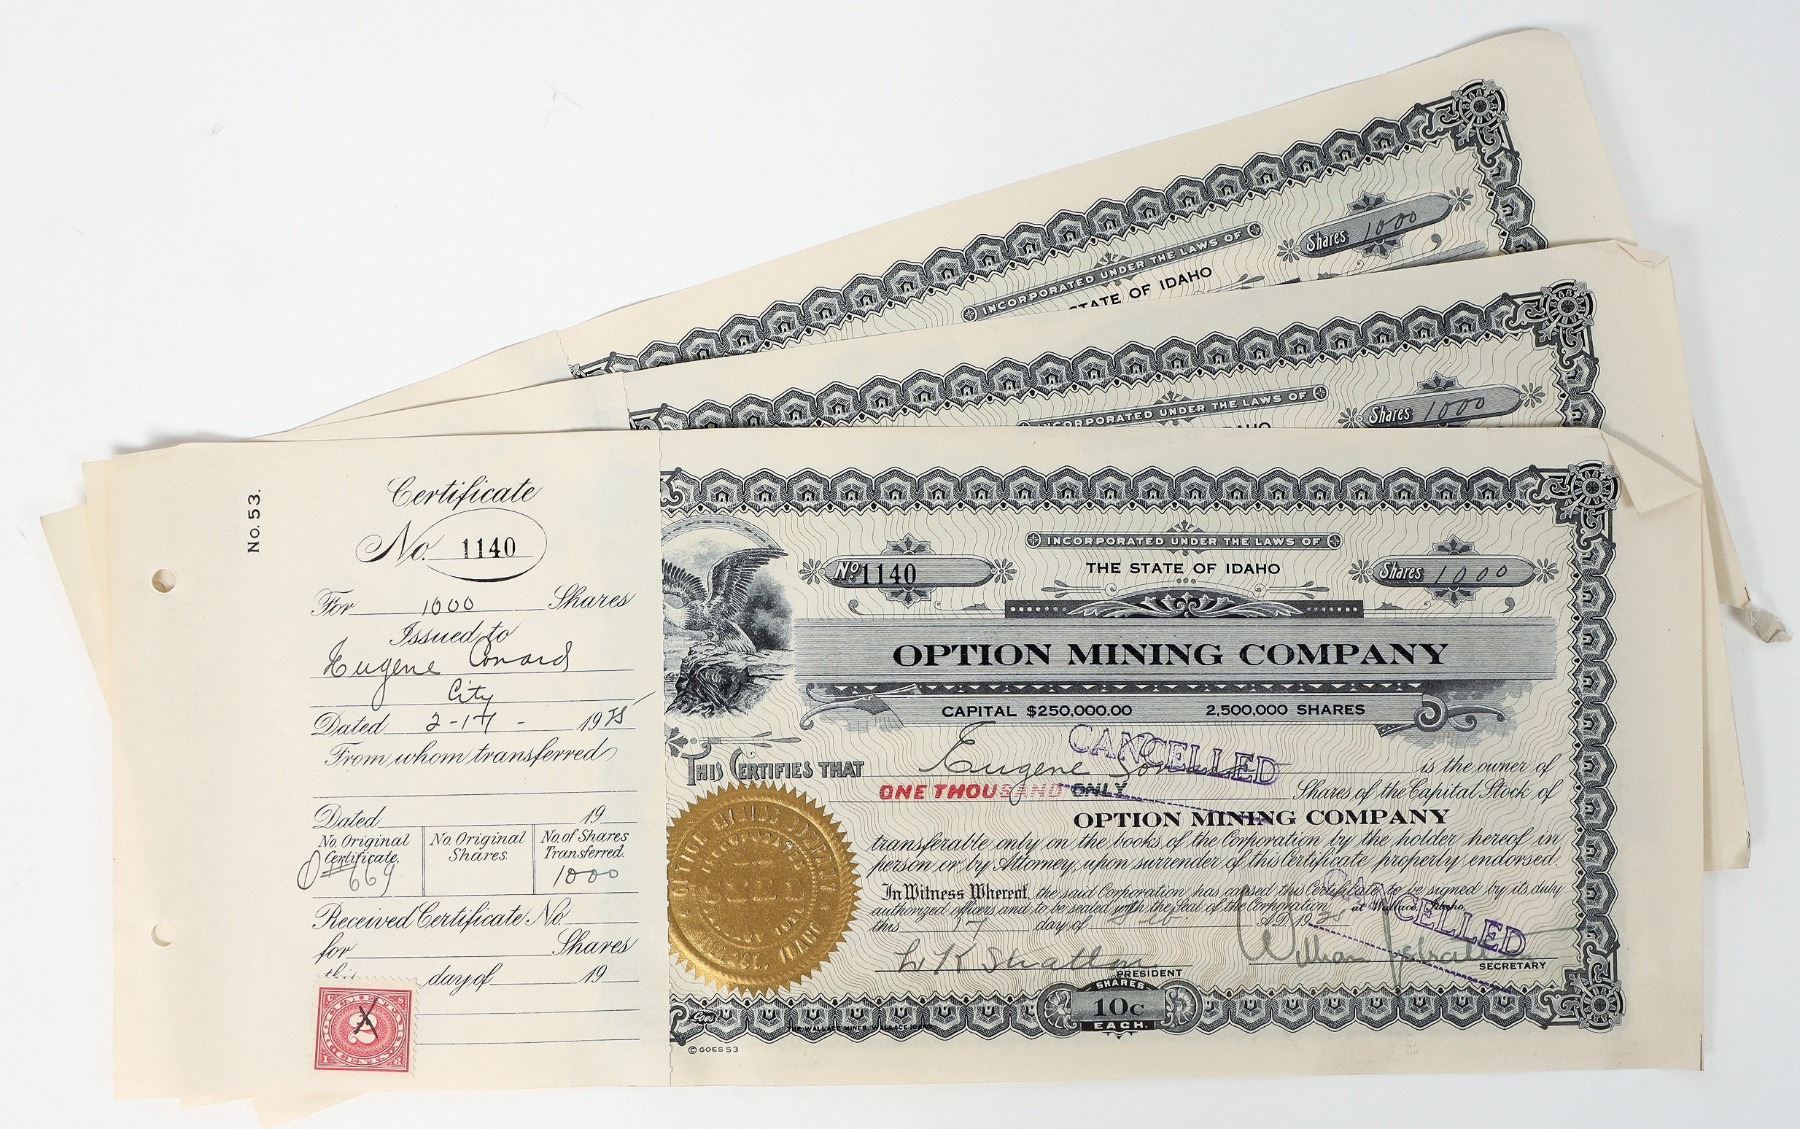 Shares 1000
INCORPORATED UNDER THE LAWS OF
STATE OF IDAHO
Shares 1000
INCORPORATED UNDER THE LAWS OF
IDAHO
No. 53.
Certificate
No. 1140
For 1000 Shares
Issued to
Eugene Conard
City
Dated 2-17- 1928
From whom transferred
Dated 19
No. Original Certificate. No. Original Shares. No. of Shares Transferred.
669 1000
Received Certificate No.
for Shares
this day of 19
INCORPORATED UNDER THE LAWS OF
No 1140 THE STATE OF IDAHO Shares 1000
OPTION MINING COMPANY
CAPITAL $250,000.00 2,500,000 SHARES
THIS CERTIFIES THAT Eugene is the owner of
CANCELLED
ONE THOUSAND ONLY Shares of the Capital Stock of
OPTION MINING COMPANY
transferable only on the books of the Corporation by the holder hereof in
person or by Attorney, upon surrender of this Certificate properly endorsed.
In Witness Whereof, the said Corporation has caused this Certificate to be signed by its duly
authorized officers and to be sealed with the Seal of the Corporation at Wallace, Idaho,
this 17 day of A.D. 1928
CANCELLED
L K Stratton William
PRESIDENT SECRETARY
SHARES
10c
EACH.
© GOES 53